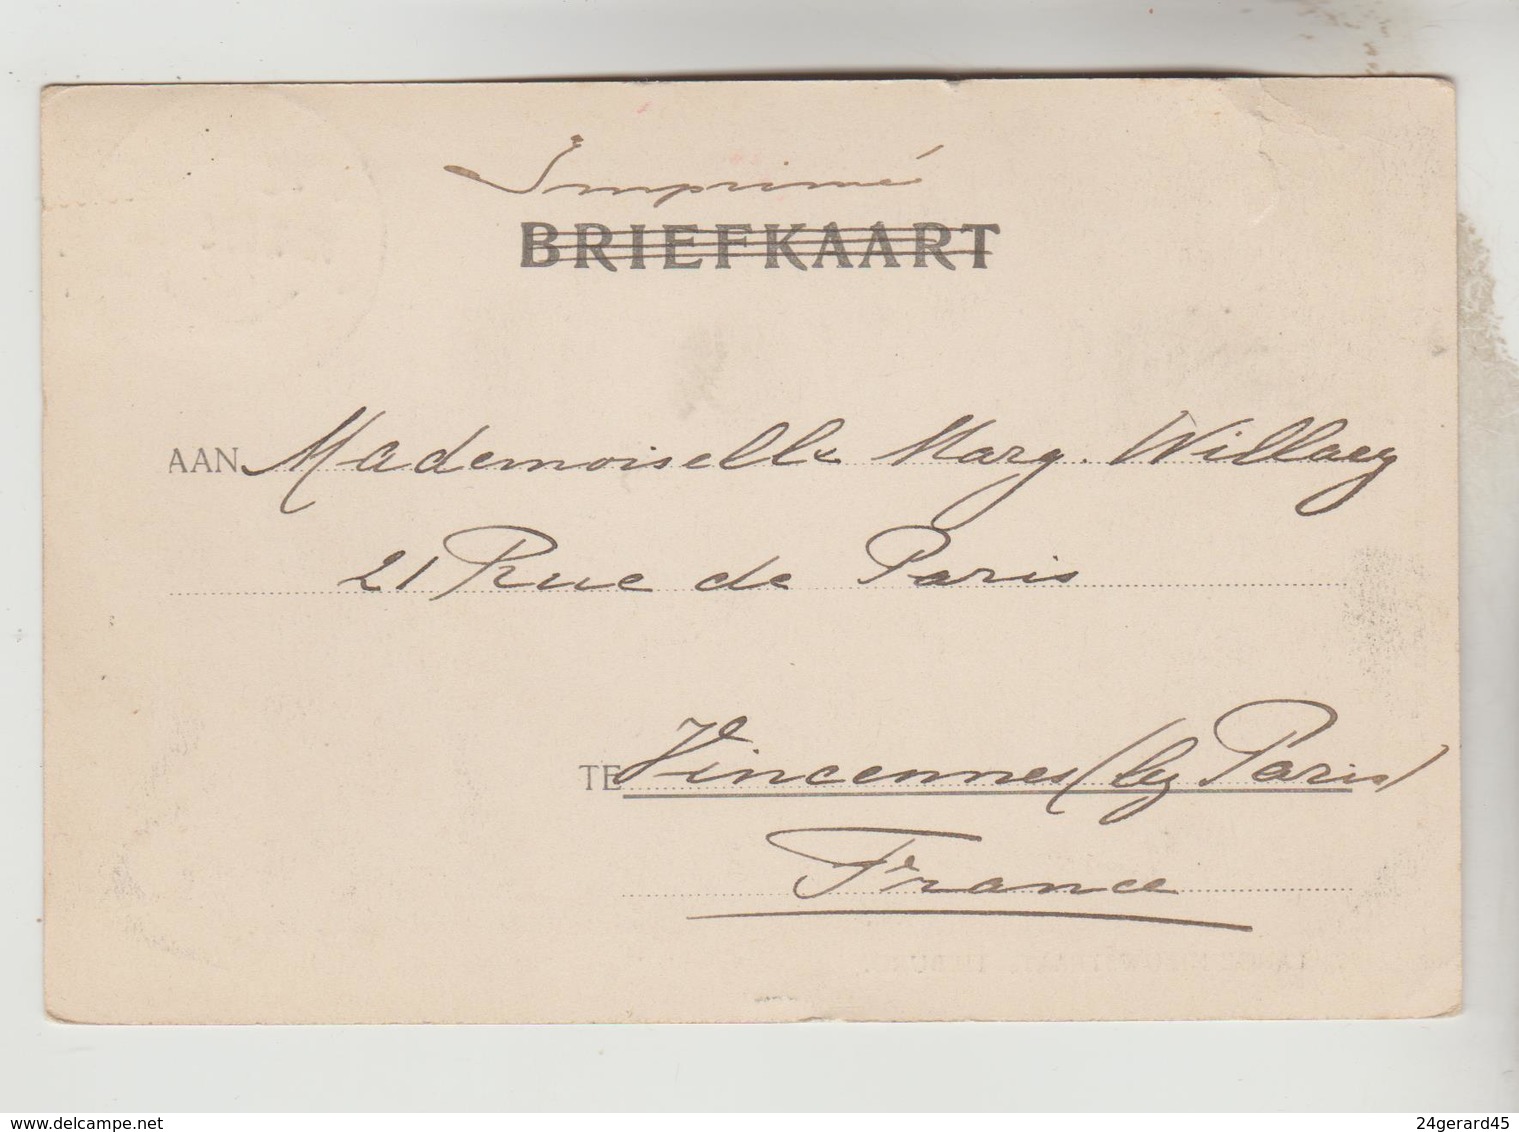 Imprimé
BRIEFKAART
AAN Mademoiselle Marg. Willaey
21 Rue de Paris
TE Vincennes (by Paris)
France
delcampe.net
24gerard45